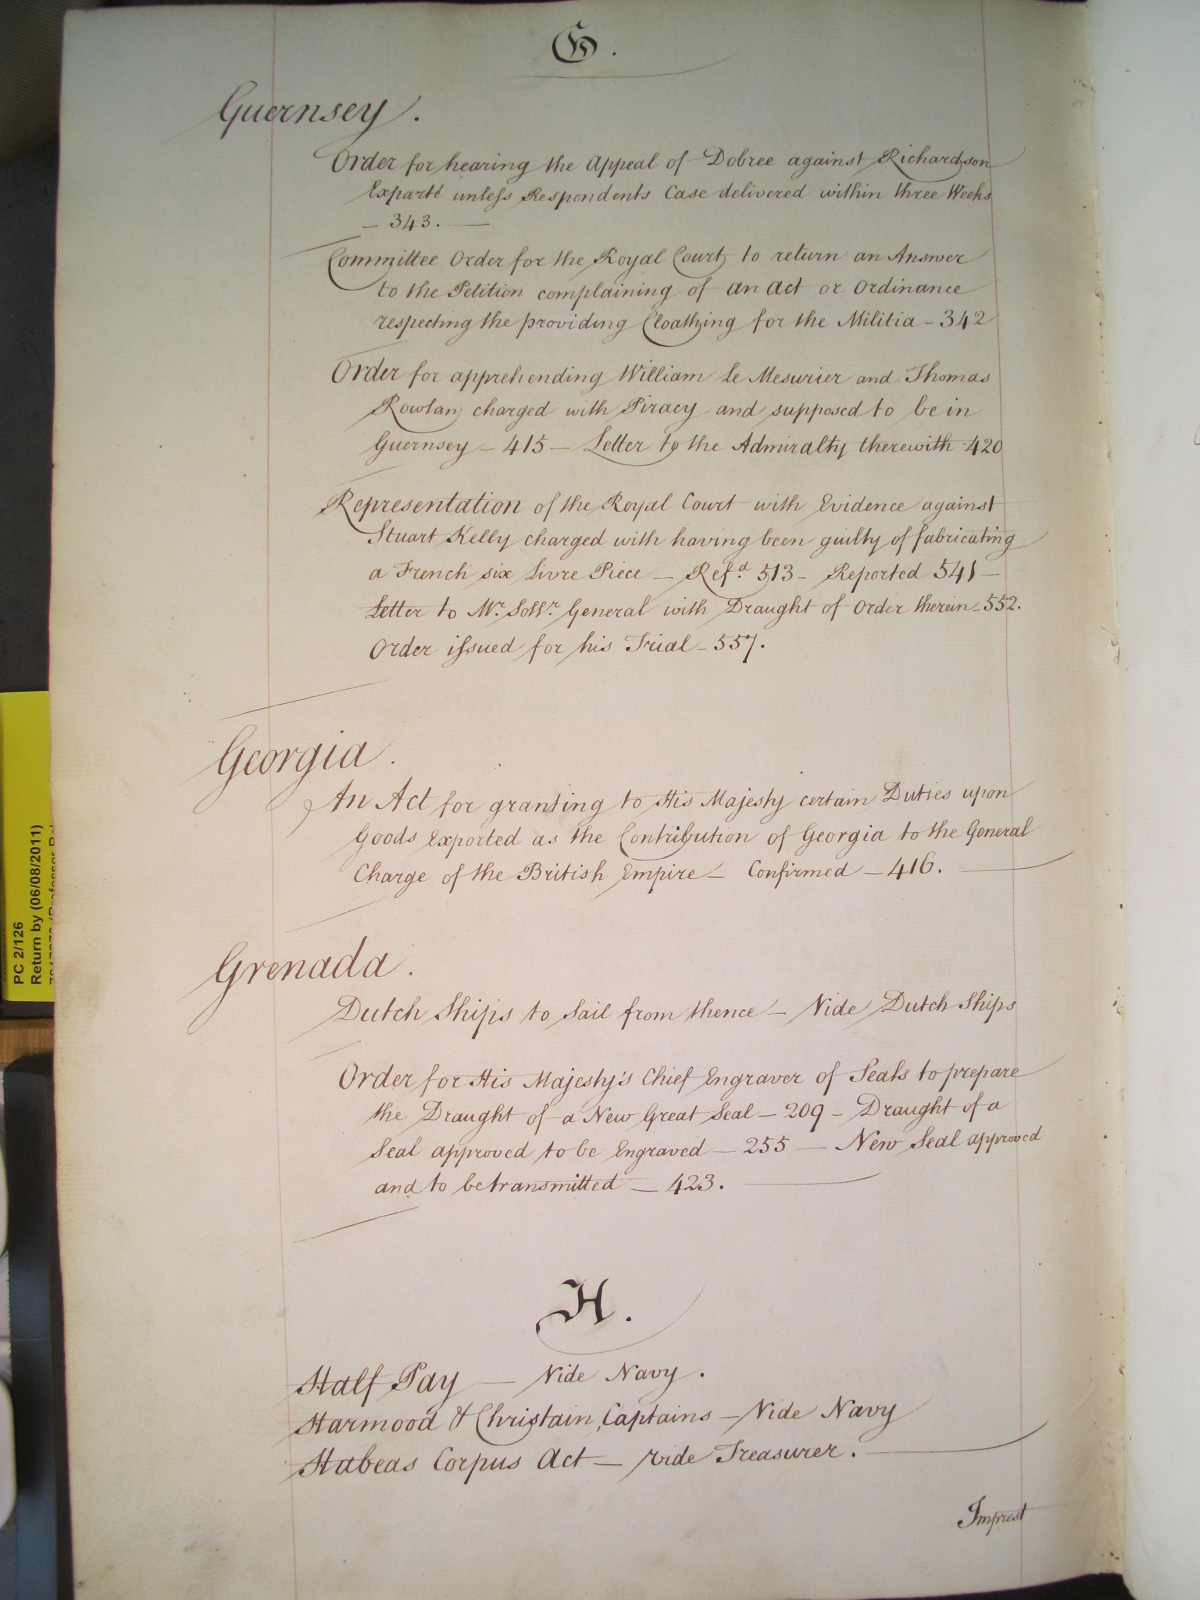 G.
Guernsey.
Order for hearing the Appeal of Dobree against Richardson
Exparté unless Respondents Case delivered within three Weeks
— 343. —
Committee Order for the Royal Court to return an Answer
to the Petition complaining of an Act or Ordinance
respecting the providing Cloathing for the Militia — 342
Order for apprehending William Le Mesurier and Thomas
Rowlan charged with Piracy and supposed to be in
Guernsey — 415 — Letter to the Admiralty therewith 420
Representation of the Royal Court with Evidence against
Stuart Kelly charged with having been guilty of fabricating
a French six Livre Piece — Ref.d 513 — Reported 541 —
Letter to Mr. Sollr. General with Draught of Order therein — 552.
Order issued for his Trial — 557.
Georgia.
An Act for granting to His Majesty certain Duties upon
Goods Exported as the Contribution of Georgia to the General
Charge of the British Empire — Confirmed — 416.
Grenada.
Dutch Ships to Sail from thence — Vide Dutch Ships
Order for His Majesty's Chief Engraver of Seals to prepare
the Draught of a New Great Seal — 209 — Draught of a
Seal approved to be Engraved — 255 — New Seal approved
and to be transmitted — 423.
H.
Half Pay — Vide Navy.
Harmood & Christain, Captains — Vide Navy
Habeas Corpus Act — vide Treasurer.
Imprest
PC 2/126
Return by (06/08/2011)